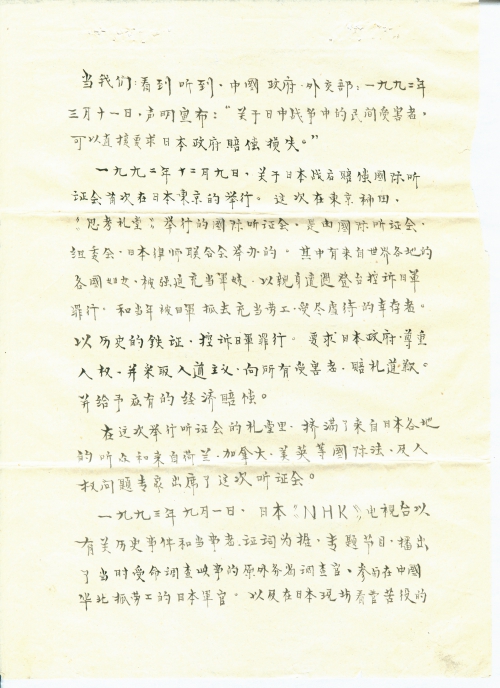 当我们：看到听到，中國政府·外交部：一九九二年
三月十一日，声明宣布：“关于日中战争中的民间受害者，
可以直接要求日本政府賠偿损失。”
一九九二年十二月九日，关于日本战后賠偿國际听
证会首次在日本東京的举行。这次在東京神田，
《思考礼堂》举行的國际听证会，是由國际听证会，
组委会，日本律师联合会举办的。其中有来自世界各地的
各國妇女，被强迫充当軍妓，以親身遭遇登台控诉日軍
罪行，和当年被日軍抓去充当劳工，受尽虐待的幸存者。
以历史的铁证，控诉日軍罪行。要求日本政府，尊重
人权，并采取人道主义，向所有受害者，賠礼道歉。
并给予应有的经济賠偿。
在这次举行听证会的礼堂里，挤满了来自日本各地
的听众和来自荷兰，加拿大，美英等國际法，及人
权问题专家出席了这次听证会。
一九九三年九月一日，日本《NHK》电视台以
有关历史事件和当事者，证词为据，专题节目，播出
了当时受命调查映事的原外务省调查官，参与在中國
华北抓劳工的日本軍官。以及在日本现场看管苦役的